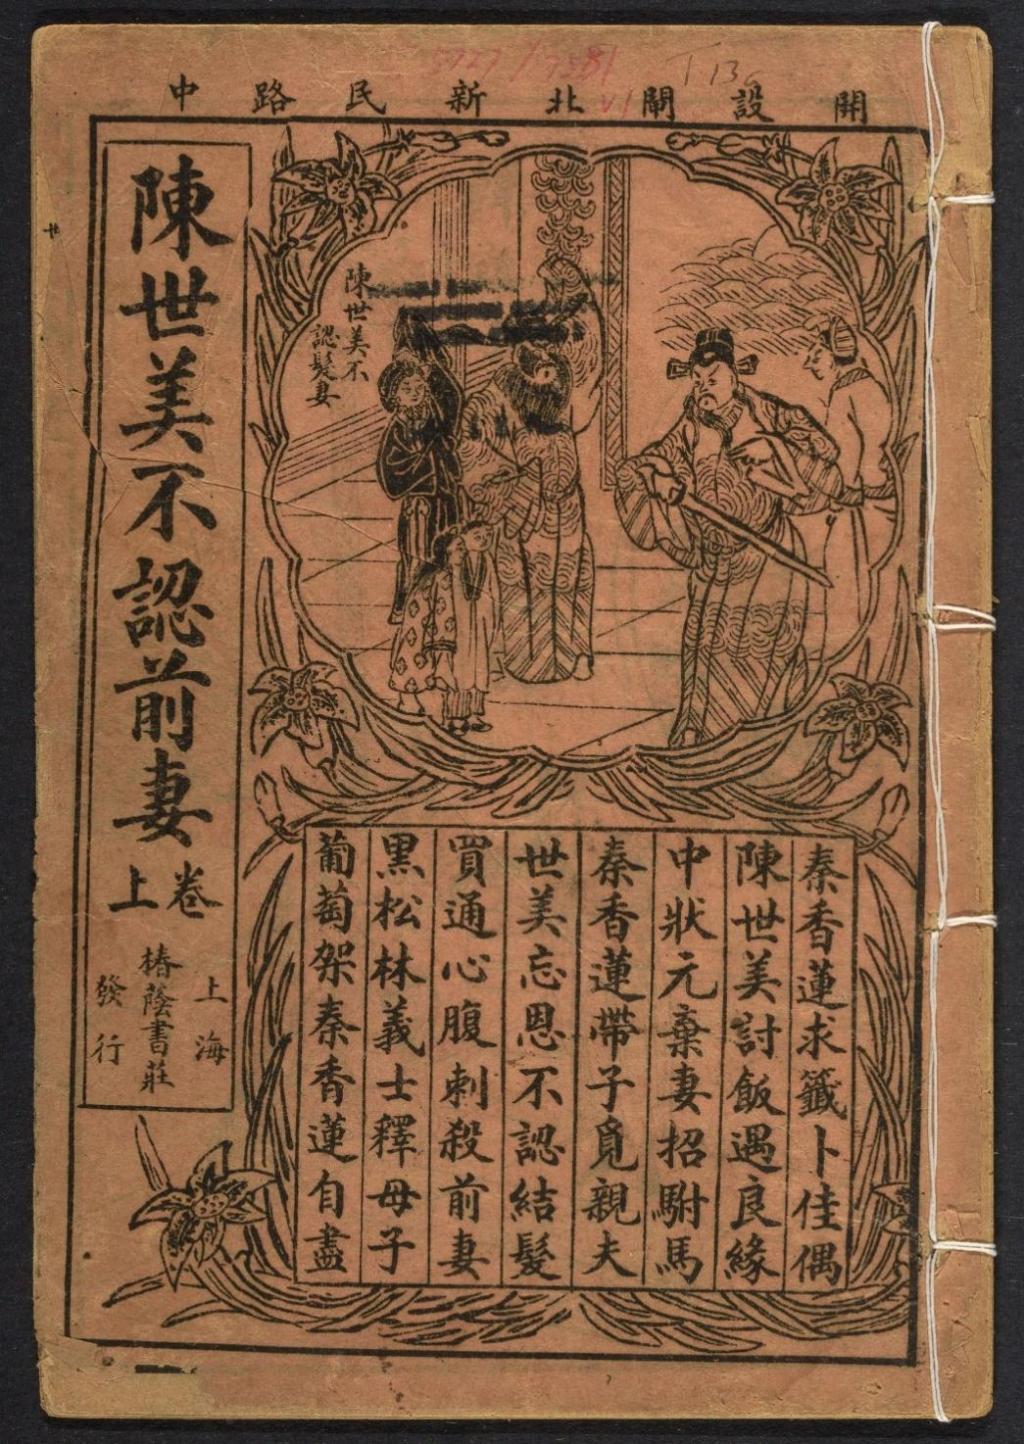 5727/7581
T 13
V1
開設閘北新民路中
陳世美不認前妻
卷上
上海
椿蔭書莊
發行
陳世美不
認髮妻
秦香蓮求籤卜佳偶
陳世美討飯遇良緣
中狀元棄妻招駙馬
秦香蓮帶子覓親夫
世美忘恩不認結髮
買通心腹刺殺前妻
黑松林義士釋母子
葡萄架秦香蓮自盡